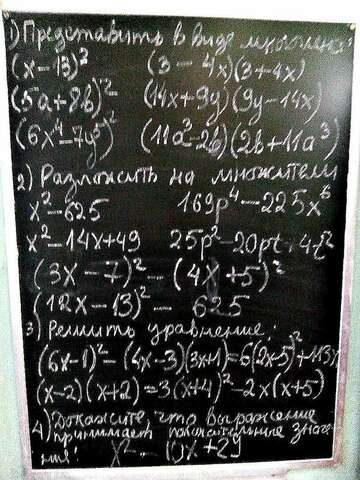 1) Представить в виде многочлена:
(x-13)² (3-4x)(3+4x)
(5a+8b)² (14x+9y)(9y-14x)
(6x⁴-7y⁵)² (11a³-2b)(2b+11a³)
2) Разложить на множители
x²-625 169p⁴-225x⁶
x²-14x+49 25p²-20pt+4t²
(3x-7)²-(4x+5)²
(12x-13)²-625
3) Решить уравнение:
(6x-1)²-(4x-3)(3x+1)=6(2x+5)²+113x
(x-2)(x+2)=3(x+4)²-2x(x+5)
4) Докажите что выражение
принимает положительные значе-
ния: x²-10x+29